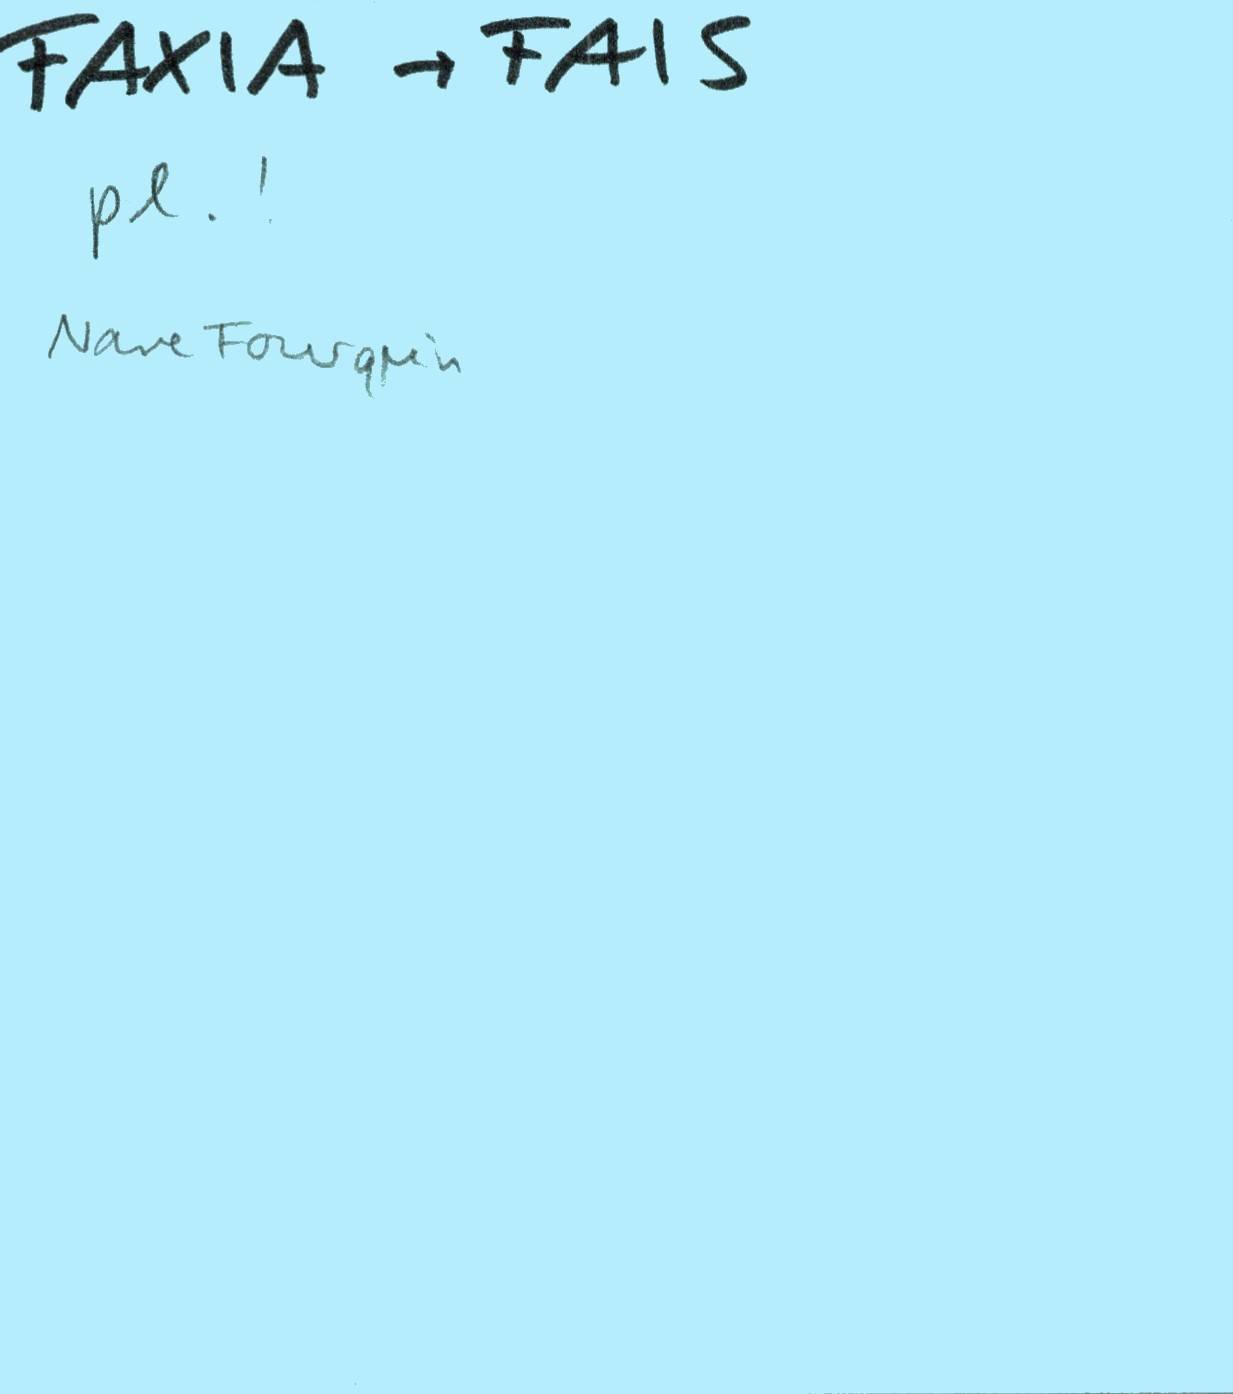 FAXIA → FAIS
pl. !
Nave Fourquin